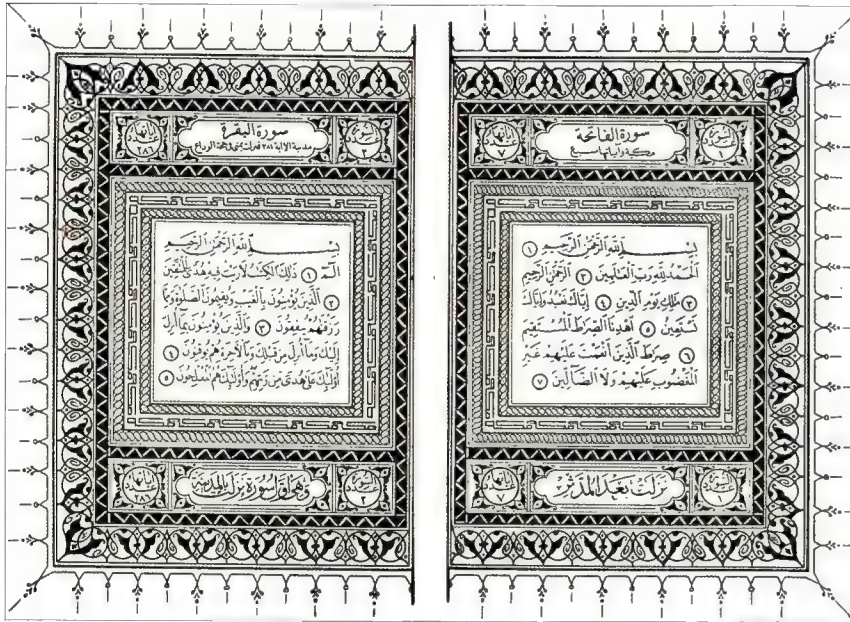 سورة الفاتحة
مكية وآياتها سبع
السورة
١
آياتها
٧
بِسْمِ اللَّهِ الرَّحْمَٰنِ الرَّحِيمِ ١
الْحَمْدُ لِلَّهِ رَبِّ الْعَالَمِينَ ٢ الرَّحْمَٰنِ الرَّحِيمِ
٣ مَٰلِكِ يَوْمِ الدِّينِ ٤ إِيَّاكَ نَعْبُدُ وَإِيَّاكَ
نَسْتَعِينُ ٥ اهْدِنَا الصِّرَٰطَ الْمُسْتَقِيمَ
٦ صِرَٰطَ الَّذِينَ أَنْعَمْتَ عَلَيْهِمْ غَيْرِ
الْمَغْضُوبِ عَلَيْهِمْ وَلَا الضَّالِّينَ ٧
السورة
١
نزلت بعد المدثر
آياتها
٧
السورة
٢
سورة البقرة
مدنية إلا آية ٢٨١ فنزلت بمنى في حجة الوداع
آياتها
٢٨٦
بِسْمِ اللَّهِ الرَّحْمَٰنِ الرَّحِيمِ
الٓمٓ ١ ذَٰلِكَ الْكِتَٰبُ لَا رَيْبَ فِيهِ هُدًى لِّلْمُتَّقِينَ
٢ الَّذِينَ يُؤْمِنُونَ بِالْغَيْبِ وَيُقِيمُونَ الصَّلَوٰةَ وَمِمَّا
رَزَقْنَٰهُمْ يُنفِقُونَ ٣ وَالَّذِينَ يُؤْمِنُونَ بِمَا أُنزِلَ
إِلَيْكَ وَمَا أُنزِلَ مِن قَبْلِكَ وَبِالْآخِرَةِ هُمْ يُوقِنُونَ ٤
أُولَٰئِكَ عَلَىٰ هُدًى مِّن رَّبِّهِمْ وَأُولَٰئِكَ هُمُ الْمُفْلِحُونَ ٥
السورة
٢
وهي أول سورة نزلت بالمدينة
آياتها
٢٨٦